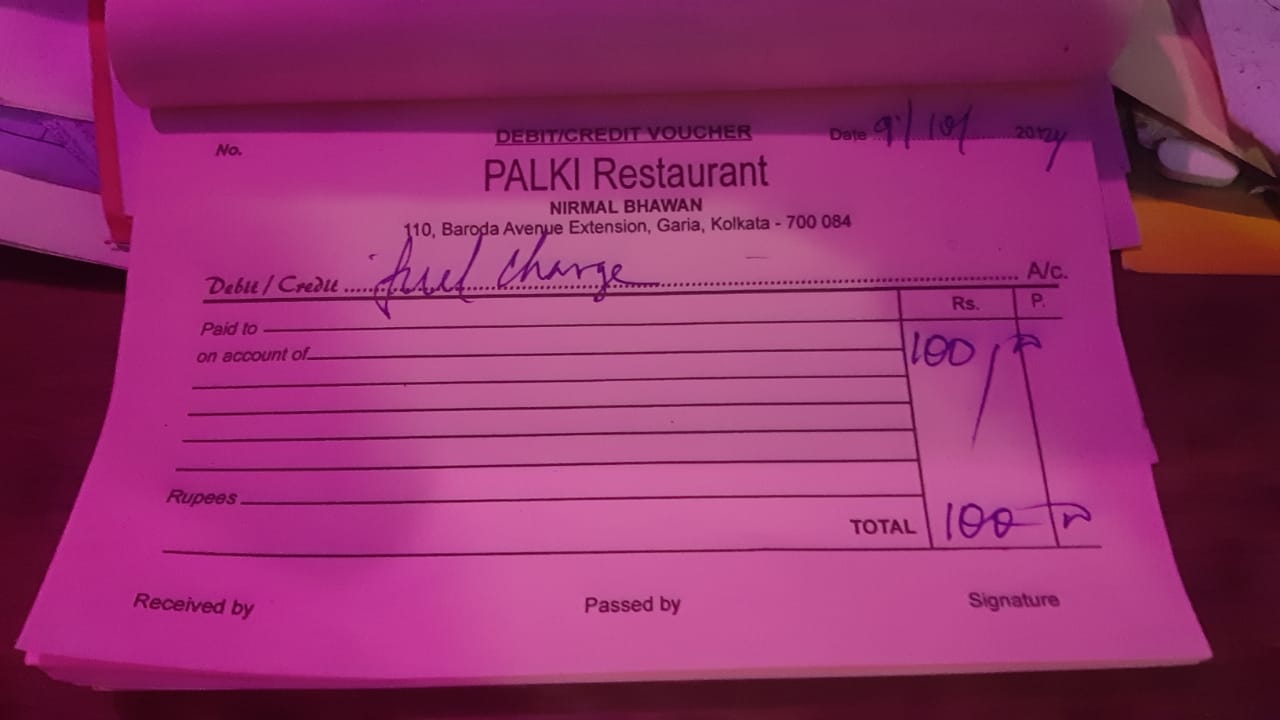 DEBIT/CREDIT VOUCHER
No.
Date 9/10/ 2024
PALKI Restaurant
NIRMAL BHAWAN
110, Baroda Avenue Extension, Garia, Kolkata - 700 084
Debit / Credit fuel charge A/c.
Rs. P.
Paid to
on account of
100/-
Rupees
TOTAL 100
Received by Passed by Signature